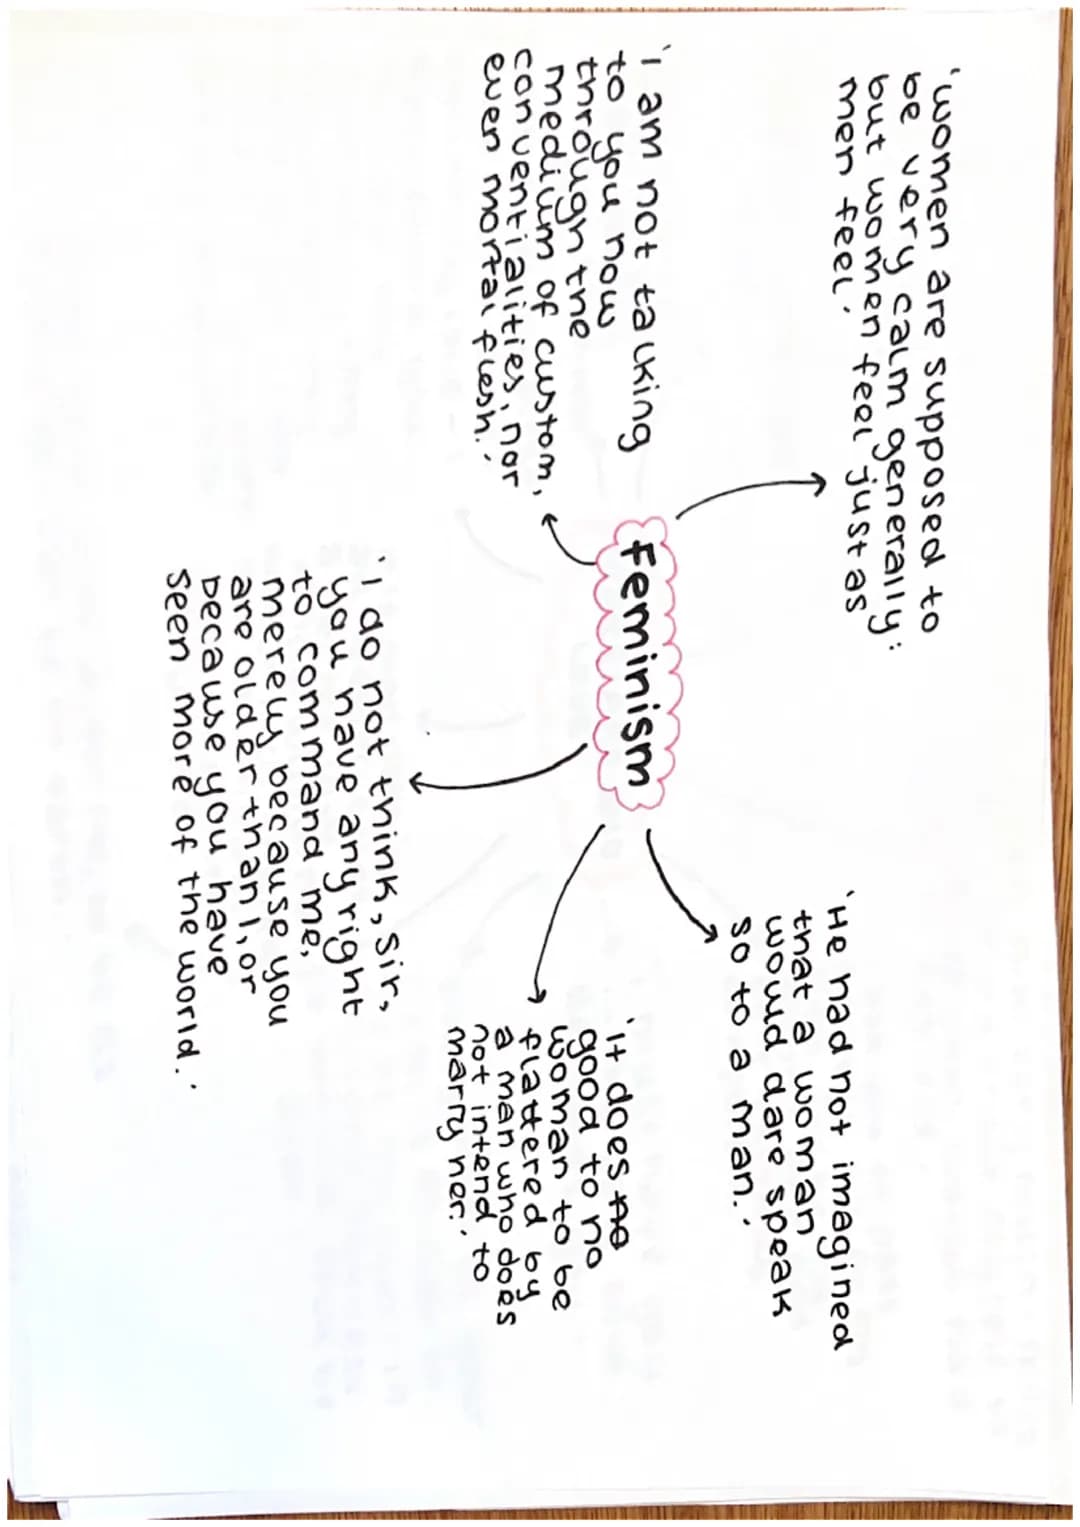 'women are supposed to
be very calm generally:
but women feel just as
men feel.'
'He had not imagined
that a woman
would dare speak
so to a man.'
Feminism
'I am not talking
to you now
through the
medium of custom,
conventialities, nor
even mortal flesh.'
'It does no
good to no
woman to be
flattered by
a man who does
not intend to
marry her.'
'I do not think, sir,
you have any right
to command me,
merely because you
are older than I, or
because you have
seen more of the world.'